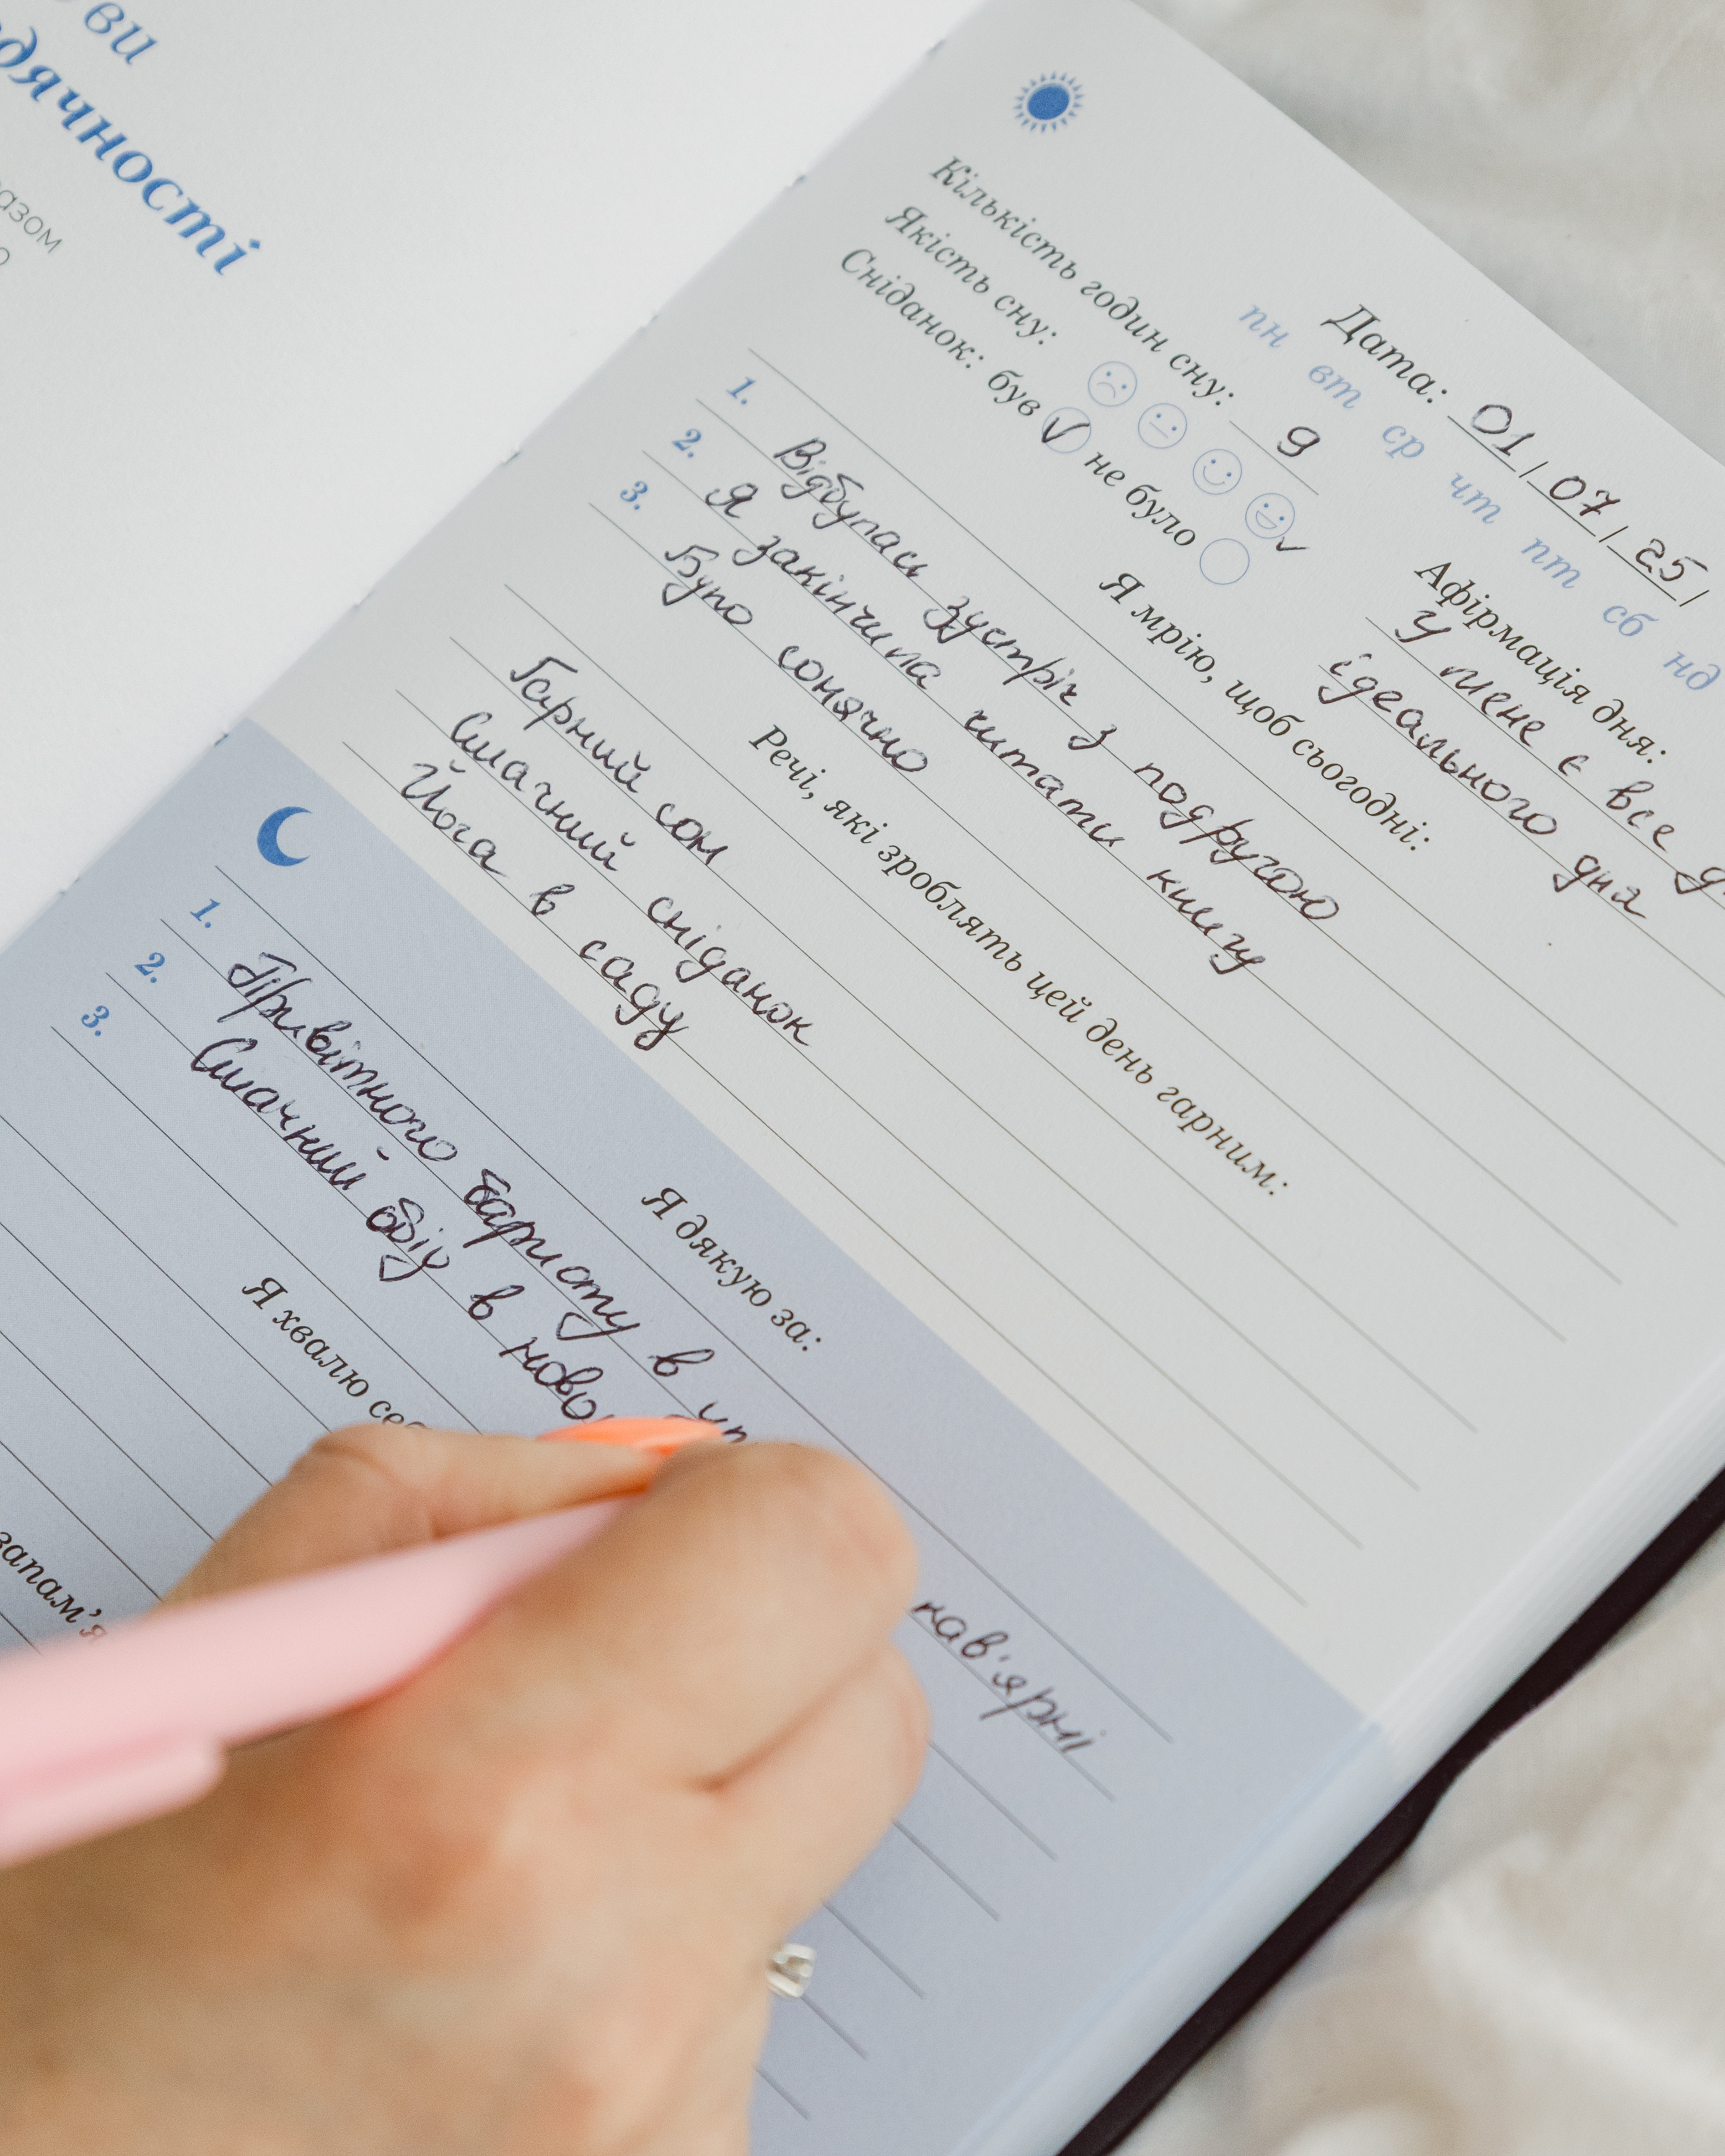 ви
дячності
азом
Дата: 01/07/25/
пн вт ср чт пт сб нд
Кількість годин сну: 9
Якість сну:
Сніданок: був ✓ не було
Афірмація дня:
У мене є все
ідеального дня
Я мрію, щоб сьогодні:
1. Відбулась зустріч з подругою
2. Я закінчила читати книгу
3. Було сонячно
Речі, які зроблять цей день гарним:
Гарний сон
Смачний сніданок
Йога в саду
Я дякую за:
1. Привітного баристу в кав'ярні
2. Смачний обід в ново
3.
Я хвалю се
запам'я